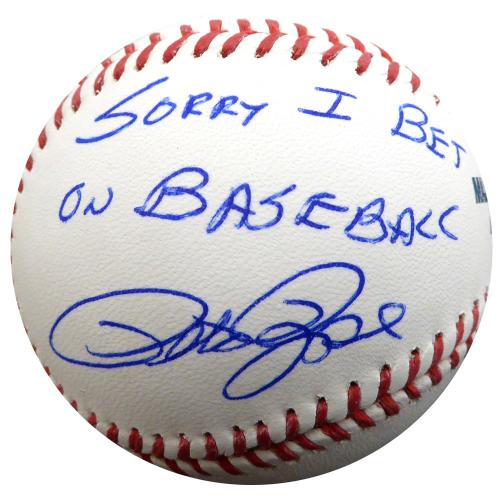 SORRY I BET
ON BASEBALL
Pete Rose